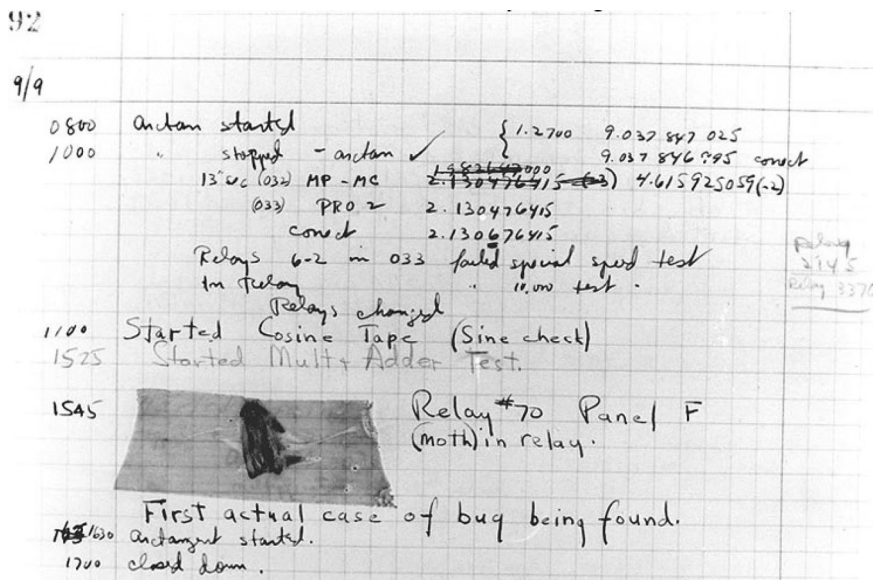 92
9/9
0800 arctan started { 1.2700 9.037 847 025
1000 " stopped - arctan ✓ 9.037 846 995 conect
13"uc (032) MP - MC 2.130476415 (-3) 4.615925059(-2)
(033) PRO 2 2.130476415
conect 2.130676415
Relays 6-2 in 033 failed special speed test
In Relay " 10.000 test .
Relay
2145
Relay 3370
Relays changed
1100 Started Cosine Tape (Sine check)
1525 Started Mult + Adder Test.
1545 Relay #70 Panel F
(moth) in relay.
First actual case of bug being found.
1630 arctangent started.
1700 closed down .